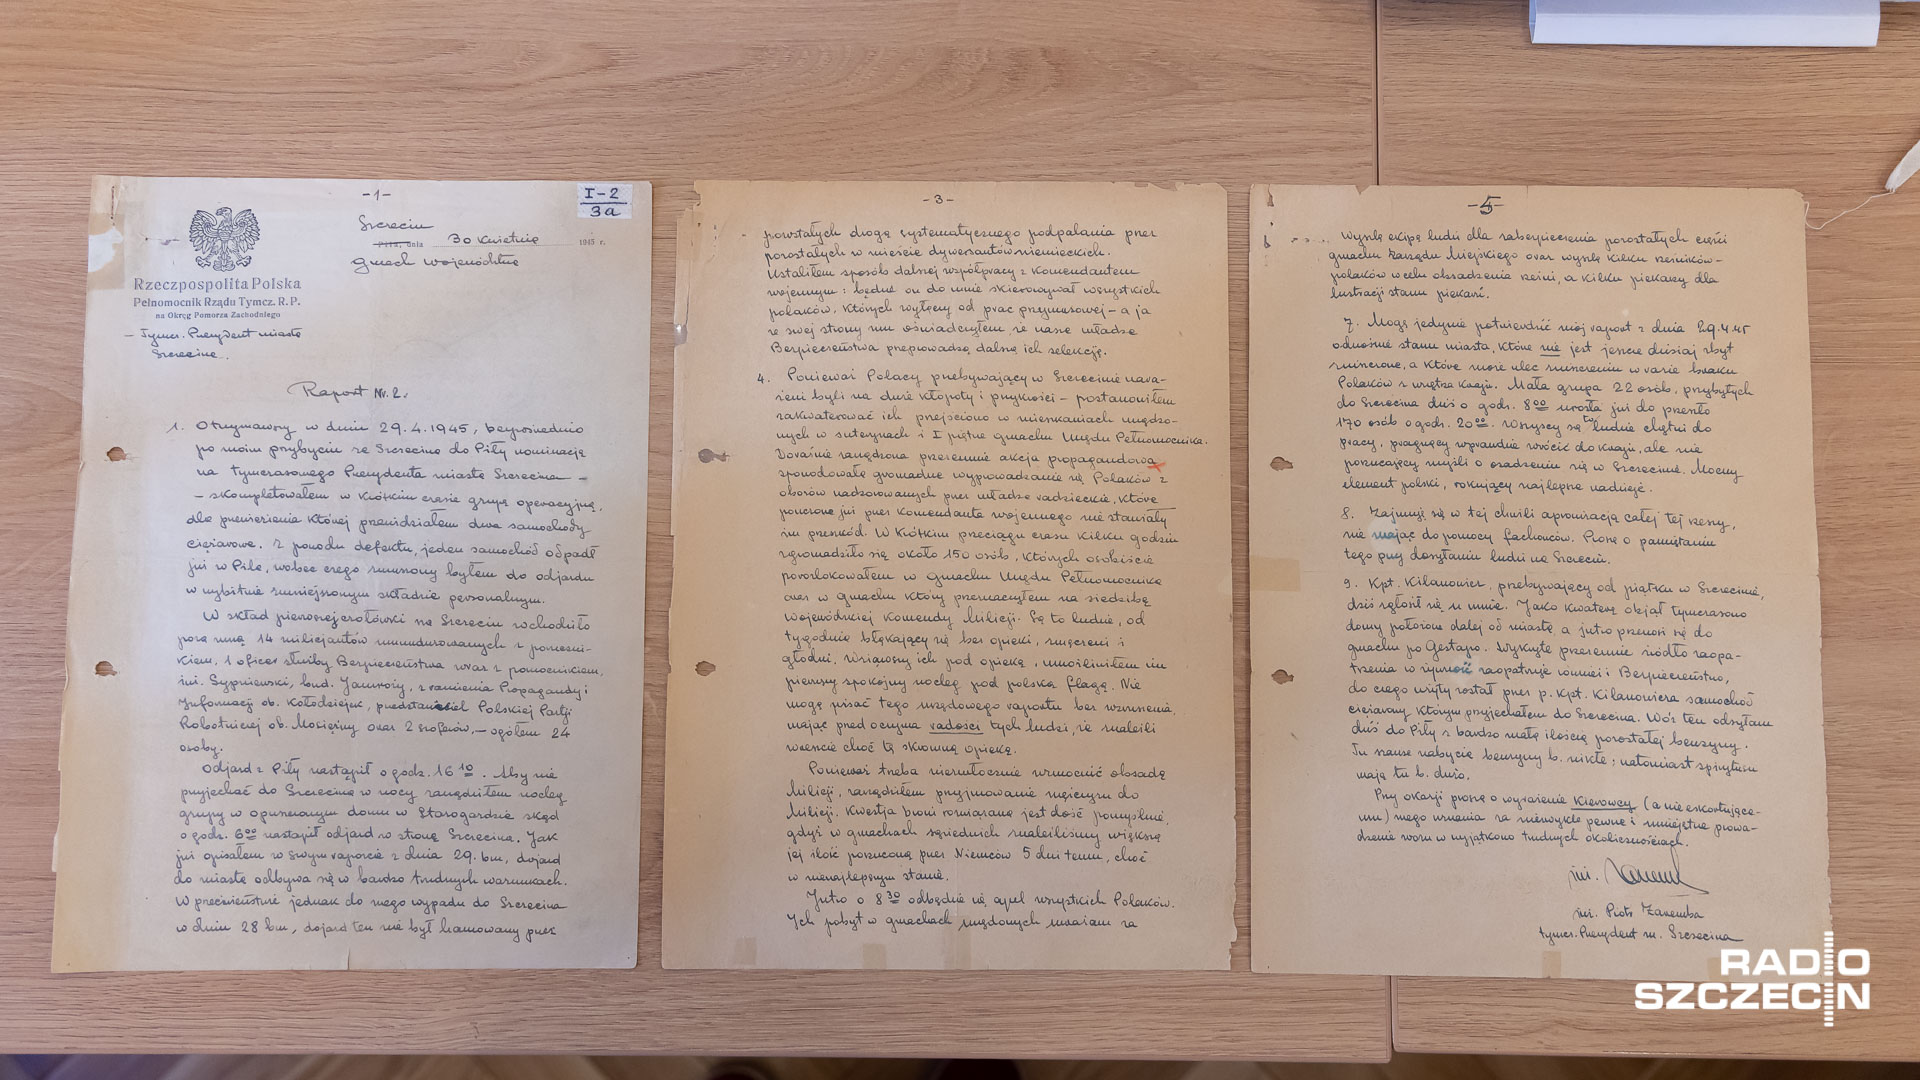 -1-
I-2
3a
Szczecin
Piła, dnia 30 kwietnia 1945 r.
Gmach Województwa
Rzeczpospolita Polska
Pełnomocnik Rządu Tymcz. R. P.
na Okręg Pomorza Zachodniego
- Tymcz. Prezydent miasta
Szczecina.
Raport Nr. 2.
1. Otrzymawszy w dniu 29.4.1945, bezpośrednio
po moim przybyciu ze Szczecina do Piły nominację
na tymczasowego Prezydenta miasta Szczecina -
- skompletowałem w krótkim czasie grupę operacyjną,
dla przewiezienia której przewidziałem dwa samochody
ciężarowe. Z powodu defektu, jeden samochód odpadł
już w Pile, wobec czego zmuszony byłem do odjazdu
w wybitnie zmniejszonym składzie personalnym.
W skład pierwszej czołówki na Szczecin wchodziło
poza mną 14 milicjantów umundurowanych z
1 oficer służby Bezpieczeństwa wraz z pomocnikiem,
inż. Sypniewski, bud. Jamroży, z ramienia Propagandy i
Informacji ob. Kołodziejek, przedstawiciel Polskiej Partji
Robotniczej ob. Mosiężny oraz 2 szoferów, - ogółem 24
osoby.
Odjazd z Piły nastąpił o godz. 16 10. Aby nie
przyjechać do Szczecina w nocy zarządziłem nocleg
grupy w opuszczonym domu w Starogardzie skąd
o godz. 6 00 nastąpił odjazd w stronę Szczecina. Jak
już opisałem w swym raporcie z dnia 29. bm, dojazd
do miasta odbywa się w bardzo trudnych warunkach.
W przeciwieństwie jednak do mego wypadu do Szczecina
w dniu 28 bm, dojazd ten nie był hamowany przez
-3-
pozostałych drogą systematycznego podpalania przez
pozostałych w mieście dywersantów niemieckich.
Ustaliłem sposób dalszej współpracy z Komendantem
wojennym: będzie on do mnie skierowywał wszystkich
polaków, których wyłączy od prac przymusowej - a ja
ze swej strony mu oświadczyłem, że nasze władze
Bezpieczeństwa przeprowadzą dalszą ich selekcję.
4. Ponieważ Polacy przebywający w Szczecinie nara-
żeni byli na duże kłopoty i przykrości - postanowiłem
zakwaterować ich przejściowo w mieszkaniach urzędo-
wych w suterynach i I piętrze gmachu Urzędu Pełnomocnika.
Doraźnie zarządzona przezemnie akcja propagandowa
spowodowała gromadne wyprowadzanie się Polaków z
obozów nadzorowanych przez władze radzieckie, które
pouczone już przez Komendanta wojennego nie stawiały
im przeszkód. W krótkim przeciągu czasu kilku godzin
zgromadziło się około 150 osób, których osobiście
porozlokowałem w gmachu Urzędu Pełnomocnika
oraz w gmachu który przeznaczyłem na siedzibę
Wojewódzkiej Komendy Milicji. Są to ludzie, od
tygodnia błąkający się bez opieki, zmęczeni i
głodni. Wziąwszy ich pod opiekę, umożliwiłem im
pierwszy spokojny nocleg pod polską flagą. Nie
mogę pisać tego urzędowego raportu bez wzruszenia,
mając przed oczyma radości tych ludzi, że znaleźli
wreszcie choć tą skromną opiekę.
Ponieważ trzeba niezwłocznie wzmocnić obsadę
Milicji, zarządziłem przyjmowanie mężczyzn do
Milicji. Kwestja broni rozwiązana jest dość pomyślnie,
gdyż w gmachach sąsiednich znaleźliśmy większą
jej ilość porzuconą przez Niemców 5 dni temu, choć
w nienajlepszym stanie.
Jutro o 8 30 odbędzie się apel wszystkich Polaków.
Ich pobyt w gmachach urzędowych uważam za
-5-
Wyślę ekipę ludzi dla zabezpieczenia pozostałych części
gmachu Zarządu Miejskiego oraz wyślę kilku rzeźników-
polaków w celu obsadzenia rzeźni, a kilku piekarzy dla
lustracji stanu piekarń.
7. Mogę jedynie potwierdzić mój raport z dnia 29.4.45
odnośnie stanu miasta, które nie jest jeszcze dzisiaj zbyt
zniszczone, a które może ulec zniszczeniu w razie braku
Polaków z wnętrza Kraju. Mała grupa 22 osób, przybyłych
do Szczecina dziś o godz. 8 00 urosła już do przeszło
170 osób o godz. 20 00. Wszyscy są to ludzie chętni do
pracy, pragnący wprawdzie wrócić do Kraju, ale nie
porzucający myśli o osadzeniu się w Szczecinie. Mocny
element polski, rokujący najlepsze nadzieje.
8. Zajmuję się w tej chwili aprowizacją całej tej rzeszy,
nie mając do pomocy fachowców. Proszę o pamiętaniu
tego przy dosyłaniu ludzi na Szczecin.
9. Kpt. Kilanowicz, przebywający od piątku w Szczecinie,
dziś zgłosił się u mnie. Jako kwaterę objął tymczasowo
domy położone dalej od miasta, a jutro przenosi się do
gmachu po Gestapo. Wykryte przezemnie źródło zaopa-
trzenia w żywność zaopatruje również i Bezpieczeństwo,
do czego użyty został przez p. Kpt. Kilanowicza samochód
ciężarowy którym przyjechałem do Szczecina. Wóz ten odsyłam
dziś do Piły z bardzo małą ilością pozostałej benzyny.
Tu szanse nabycia benzyny b. nikłe; natomiast spirytusu
mają tu b. dużo.
Przy okazji proszę o wyrażenie kierowcy (a nie eskortujące-
mu) mego uznania za niezwykle pewne i umiejętne prowa-
dzenie wozu w wyjątkowo trudnych okolicznościach.
inż. Zaremba
inż. Piotr Zaremba
tymcz. Prezydent m. Szczecina
RADIO
SZCZECIN